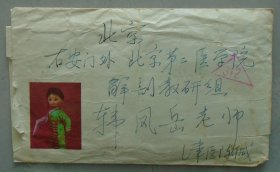 北京
右安门外 北京第二医学院
解剖教研组
韩凤岳老师